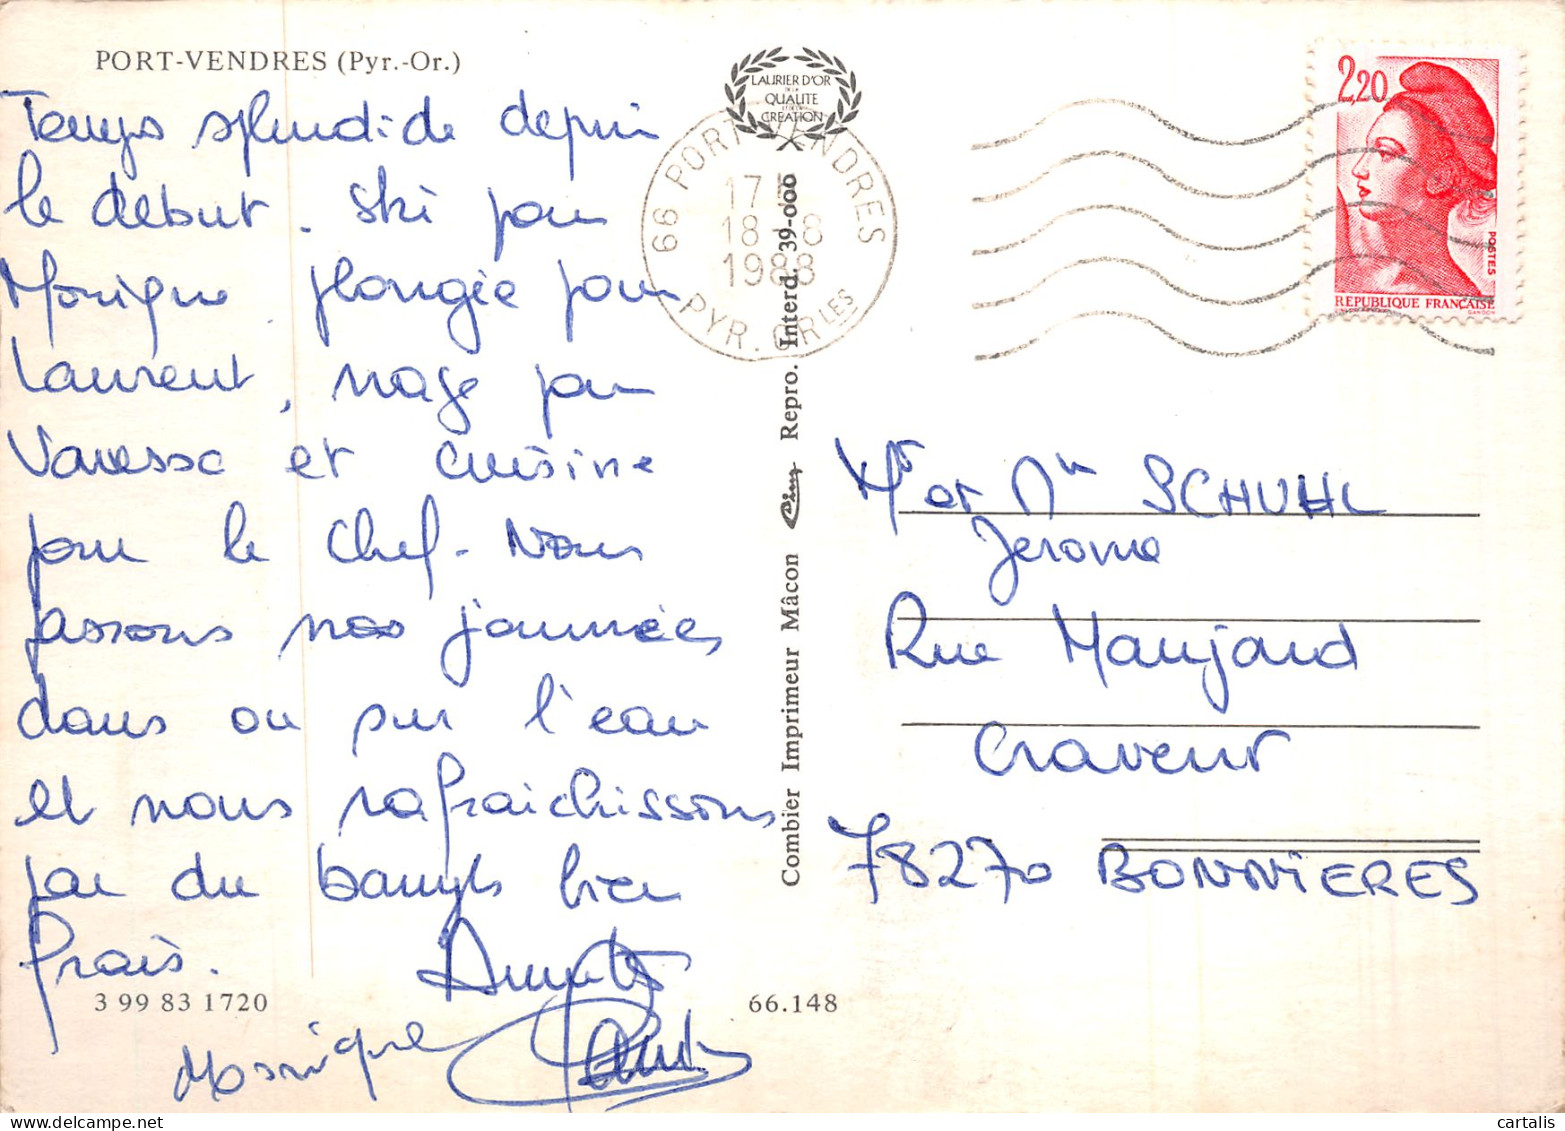 PORT-VENDRES (Pyr.-Or.)
Temps splendide depuis
le début. Ski pour
Monique, plongée pour
Laurent, nage pour
Vanessa et cuisine
pour le chef. Nous
passons nos journées
dans ou sur l'eau
et nous rafraichissons
par du banyuls bien
frais.
Monique
3 99 83 1720
66.148
LAURIER D'OR
DE LA
QUALITE
ET DE LA
CREATION
66 PORT VENDRES
17
18-8
1988
PYR. OR LES
Combier Imprimeur Mâcon Cim Repro. Interd. 39-000
2,20
POSTES
REPUBLIQUE FRANÇAISE
GANDON
Mr et Me SCHUHL
Jerome
Rue Maujard
Craveur
78270 BONNIERES
cartalis